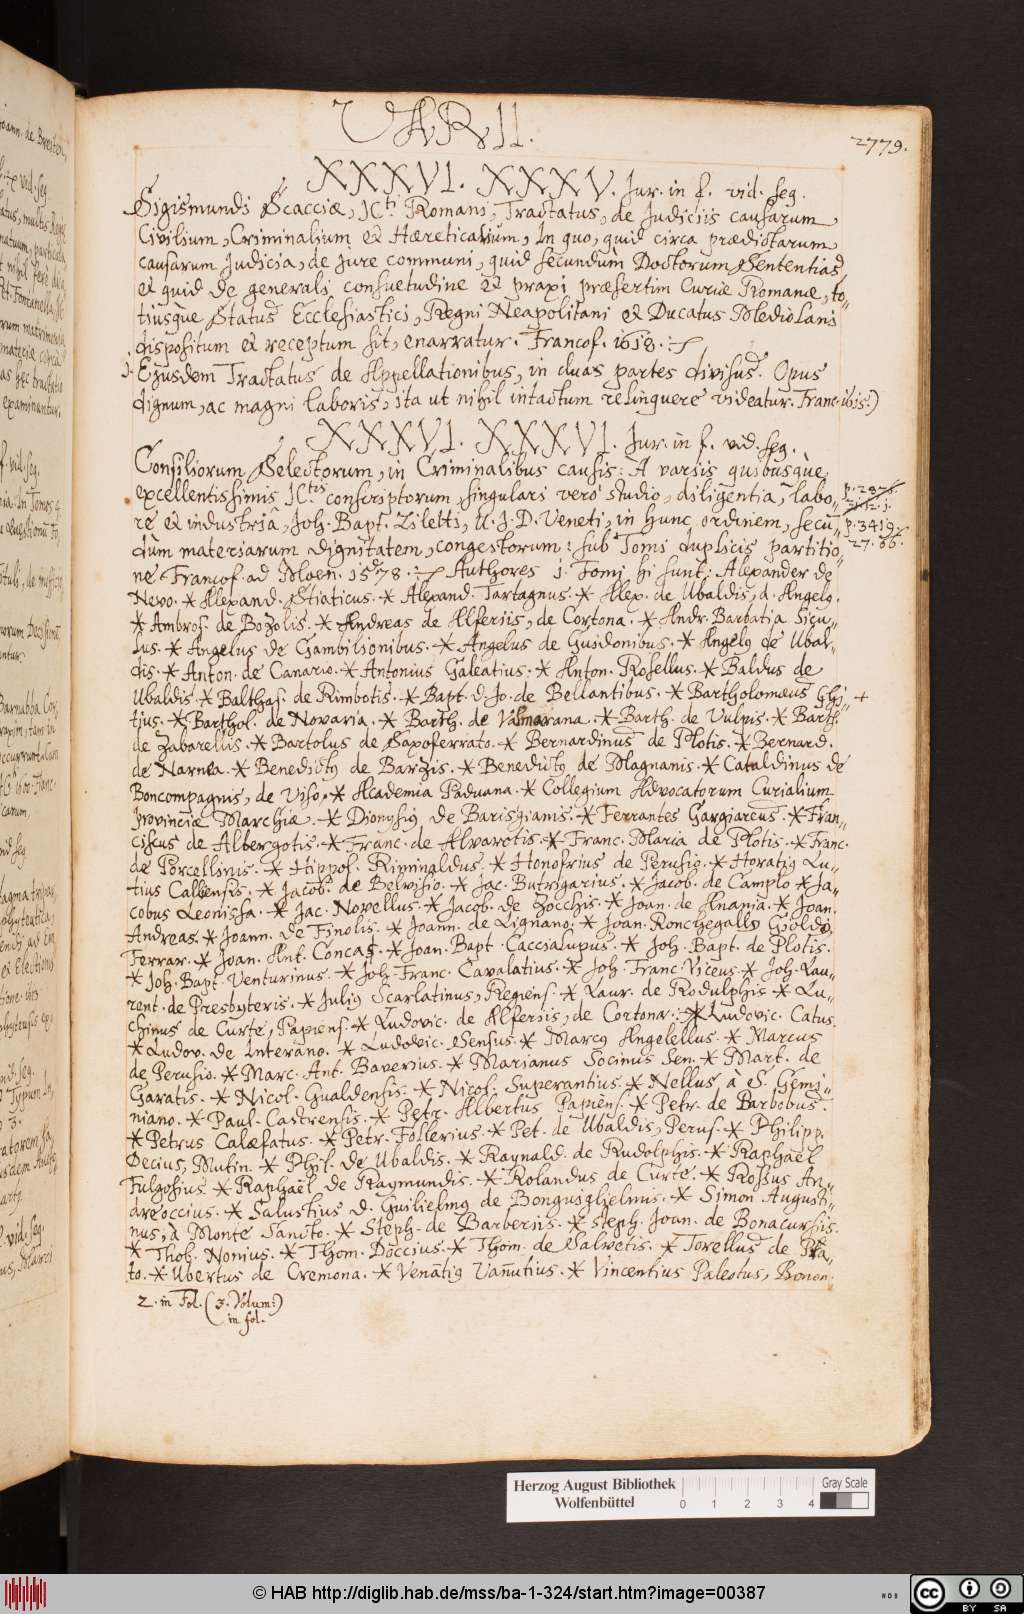 VARII.
2779.
XXXVI. XXXV. Jur. in f. vid. seg.
Sigismundi Scacciæ, JCti Romani, Tractatus, de Judiciis causarum
Civilium, Criminalium et Hæreticalium, In quo, quid circa prædictarum
causarum Judicia, de Jure communi, quid secundum Doctorum Sententias
et quid de generali consuetudine et praxi præsertim Curiæ Romanæ, to-
tiusque Status Ecclesiastici, Regni Neapolitani et Ducatus Mediolani
dispositum et receptum sit, enarratur. Francof. 1618.
j. Ejusdem Tractatus de Appellationibus, in duas partes divisus. Opus
dignum, ac magni laboris, ita ut nihil intactum relinquere videatur. Franc. 1615.)
XXXVI. XXXVI. Jur. in f. vid. seg.
Consiliorum Selectorum, in Criminalibus causis: A variis quibusque
excellentissimis JCtis conscriptorum, singulari vero studio, diligentiâ, labo-
re et industriâ, Joh. Bapt. Ziletti, U. J. D. Veneti, in hunc ordinem, secu-
dum materiarum dignitatem, congestorum: sub Tomi duplicis partitio-
p. 3419.
27. 66.
ne Francof. ad Moen. 1578. Authores j. Tomi hi sunt: Alexander de
Nevo. * Alexand. Stiaticus. * Alexand. Tartagnus. * Alex. de Ubaldis, d. Angelo.
* Ambros. de Bozolis. * Andreas de Alferiis, de Cortona. * Andr. Barbatia Sicu-
lus. * Angelus de Gambilionibus. * Angelus de Guidonibus. * Angelus de Ubal-
dis. * Anton. de Canario. * Antonius Galeatius. * Anton. Rosellus. * Baldus de
Ubaldis. * Balthas. de Rimbotis. * Bapt. d. Jo. de Bellantibus. * Bartholomæus Ghi- +
tius. * Barthol. de Novaria. * Barth. de Valmarana. * Barth. de Vulpis. * Barth.
de Zabarellis. * Bartolus de Saxoferrato. * Bernardinus de Plotis. * Bernard.
de Narnea. * Benedictus de Barzis. * Benedictus de Magnanis. * Cataldinus de
Boncompagnis, de Viso. * Academia Paduana. * Collegium Advocatorum Curialium
provinciæ Marchiæ. * Dionysius de Barisgianis. * Ferrantes Gargiareus. * Fran-
ciscus de Albergotis. * Franc. de Alvarotis. * Franc. Maria de Plotis. * Franc.
de Porcellinis. * Hippol. Riminaldus. * Honofrius de Perusio. * Horatius Lu-
tius Callensis. * Jacob. de Belvisio. * Jac. Butrigarius. * Jacob. de Camplo * Ja-
cobus Leonissa. * Jac. Novellus. * Jacob. de Zocchis. * Joan. de Anania. * Joan.
Andreas. * Joann. de Finolis. * Joann. de Lignano. * Joan. Ronchegallus Gioldus,
Ferrar. * Joan. Ant. Concas. * Joan. Bapt. Caccialupus. * Joh. Bapt. de Plotis.
* Joh. Bapt. Venturinus. * Joh. Franc. Cavalatius. * Joh. Franc. Viceus. * Joh. Lau-
rent. de Presbyteris. * Julius Scarlatinus, Regiens. * Laur. de Rodulphis * Lu-
chinus de Curte, Papiens. * Ludovic. de Alferiis, de Cortona. * Ludovic. Catus.
* Ludov. de Interano. * Ludovic. Sensus. * Marcus Angelellus. * Marcus
de Perusio. * Marc. Ant. Baverius. * Marianus Socinus Sen. * Mart. de
Garatis. * Nicol. Gualdensis. * Nicol. Superantius. * Nellus à S. Gemi-
niano. * Paul. Castrensis. * Petr. Albertus Papiens. * Petr. de Barbobus.
* Petrus Calæfatus. * Petr. Follerius. * Pet. de Ubaldis, Perus. * Philipp.
Decius, Mutin. * Phil. de Ubaldis. * Raynald. de Rudolphis. * Raphaël
Fulgosius. * Raphaël de Raymundis. * Rolandus de Curte. * Rossus An-
dreoccius. * Salustius d. Guilielmus de Bonguglielmis. * Simon Augusti-
nus, à Monte Sancto. * Steph. de Barberiis. * Steph. Joan. de Bonacursiis.
* Thob. Nonius. * Thom. Doccius. * Thom. de Salvetis. * Torellus de Pra-
to. * Ubertus de Cremona. * Venatius Vannutius. * Vincentius Paleotus, Bonon.
2. in Fol. (3. Volum:)
in fol.
Herzog August Bibliothek
Wolfenbüttel
0 1 2 3 4
Gray Scale
© HAB http://diglib.hab.de/mss/ba-1-324/start.htm?image=00387
cc BY SA